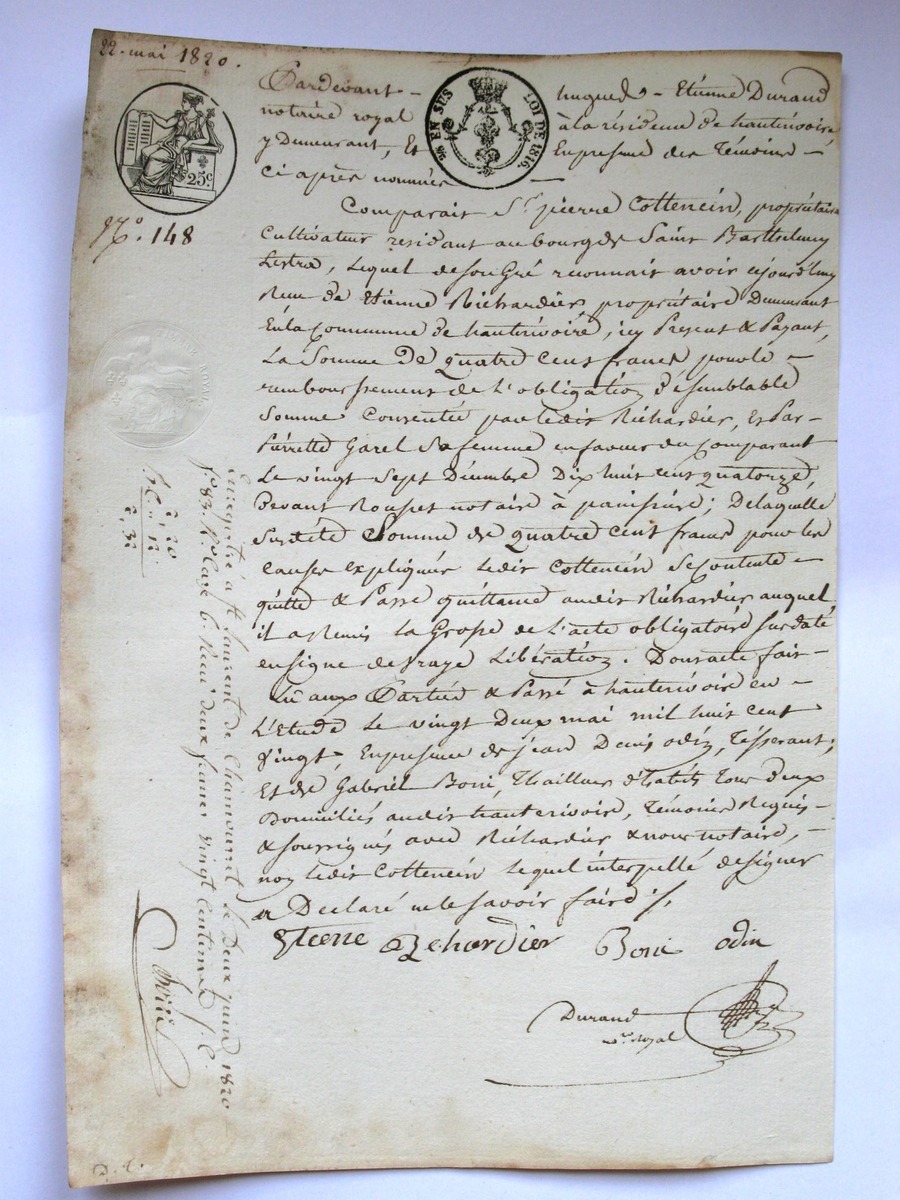 22. mai 1820.
Pardevant - hugues - Etienne Durand
notaire royal à la résidence de hauterivoire
y Demeurant, Et En presence des Témoins -
Ci après nommés
25 EN SUS LOI DE 1816
25c
N.o 148
Comparait Sr pierre Cottencin, propriétaire
Cultivateur residant au bourg de Saint Barthelemy
Lestra, Lequel de son Gré reconnait avoir cejourd'huy
Recu de Etienne Richardier propriétaire Demeurant
En la Commune de hauterivoire, icy Present & Payant,
La Somme de Quatre Cent francs pour le -
remboursement de L'obligation de semblable
Somme Consentie par ledit Richardier, Et Par
Pierrette Garel Sa femme en faveur du Comparant
Le vingt Sept Décembre Dix huit cent quatorze,
Devant Rousset notaire à panissière; De laquelle
Susdite Somme de Quatre Cent francs pour les
Causes Expliquées Ledit Cottencin Se Contente -
quitte & Passe quittance audit Richardier auquel
il a Remis La Grosse de L'acte obligatoire Susdaté
en Signe de vraye Libération. Dont acte fait -
Lu aux Parties & Passé à hauterivoire en -
L'Etude Le vingt Deux mai mil huit cent
vingt, En presence de jean Denis odin, Tisserant;
Et de Gabriel Boni, Thailleur d'habits Tous deux
Domiciliés audit hauterivoire, Témoins Requis
& soussignés avec Richardier & nous notaire, -
non Ledit Cottencin Lequel interpellé de signer
a Déclaré ne le savoir faire ./.
Etienne Richardier Boni odin
Durand
nre Royal
Enregistré à St Laurent de Chamousset le deux juin 1820
fo 83. Ro Case 6. Recu deux francs vingt Centimes S. C.
2, 20